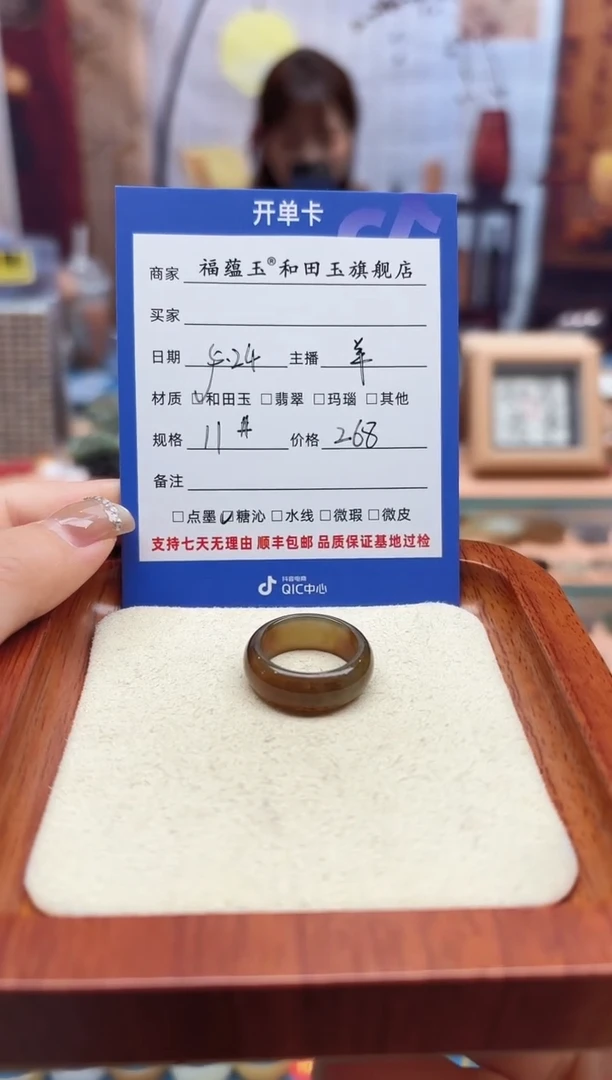 开单卡
商家 福蕴玉®和田玉旗舰店
买家
日期 5.24 主播 羊
材质 ☑和田玉 □翡翠 □玛瑙 □其他
规格 11# 价格 268
备注
□点墨 ☑糖沁 □水线 □微瑕 □微皮
支持七天无理由 顺丰包邮 品质保证基地过检
抖音电商
QIC中心